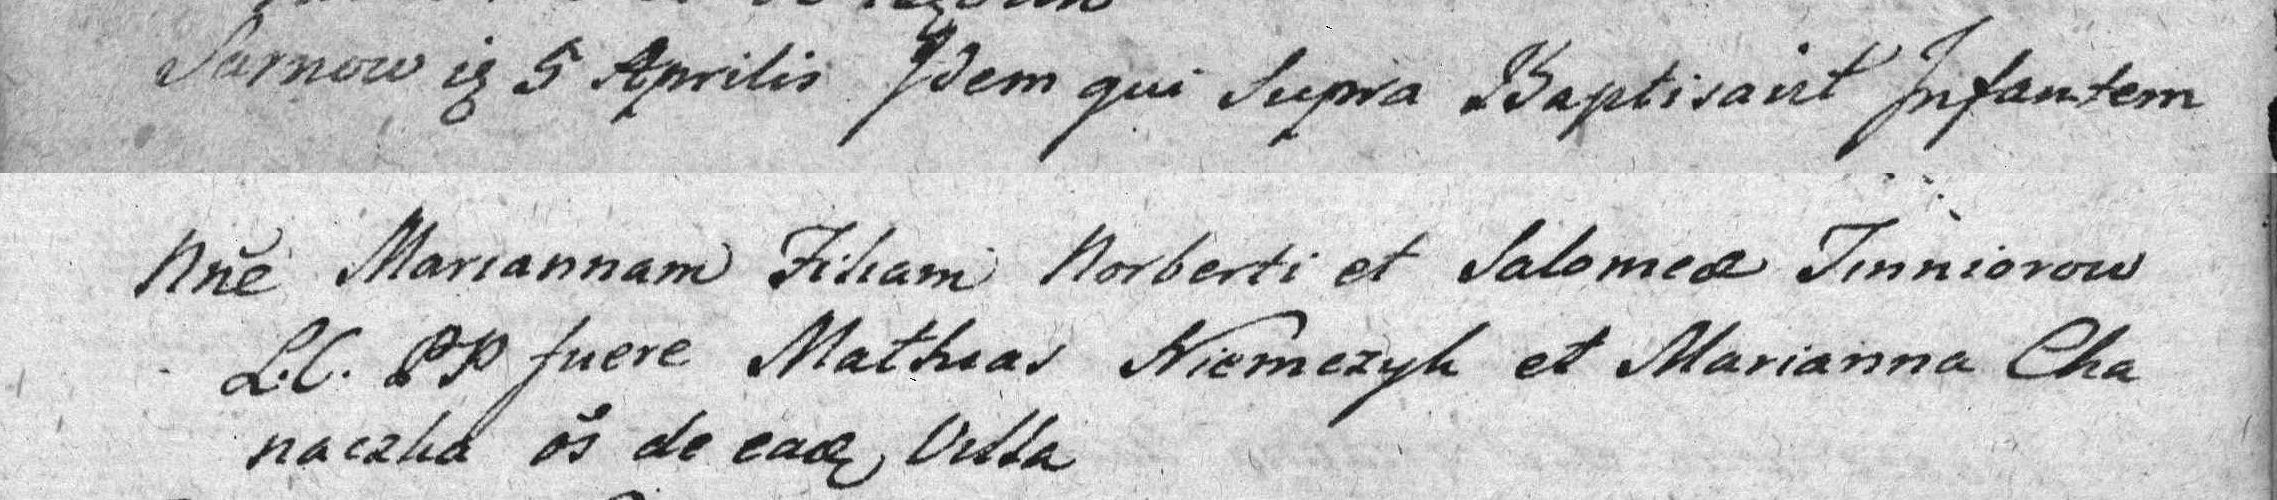 Sarnow ig 5 Aprilis Idem qui Supra Baptisavit Infantem
Nñe Mariannam Filiam Norberti et Salomeæ Junniorow
L.C. PP fuere Mathias Niemczyk et Marianna Cha
naczka os̃ de eadę Villa